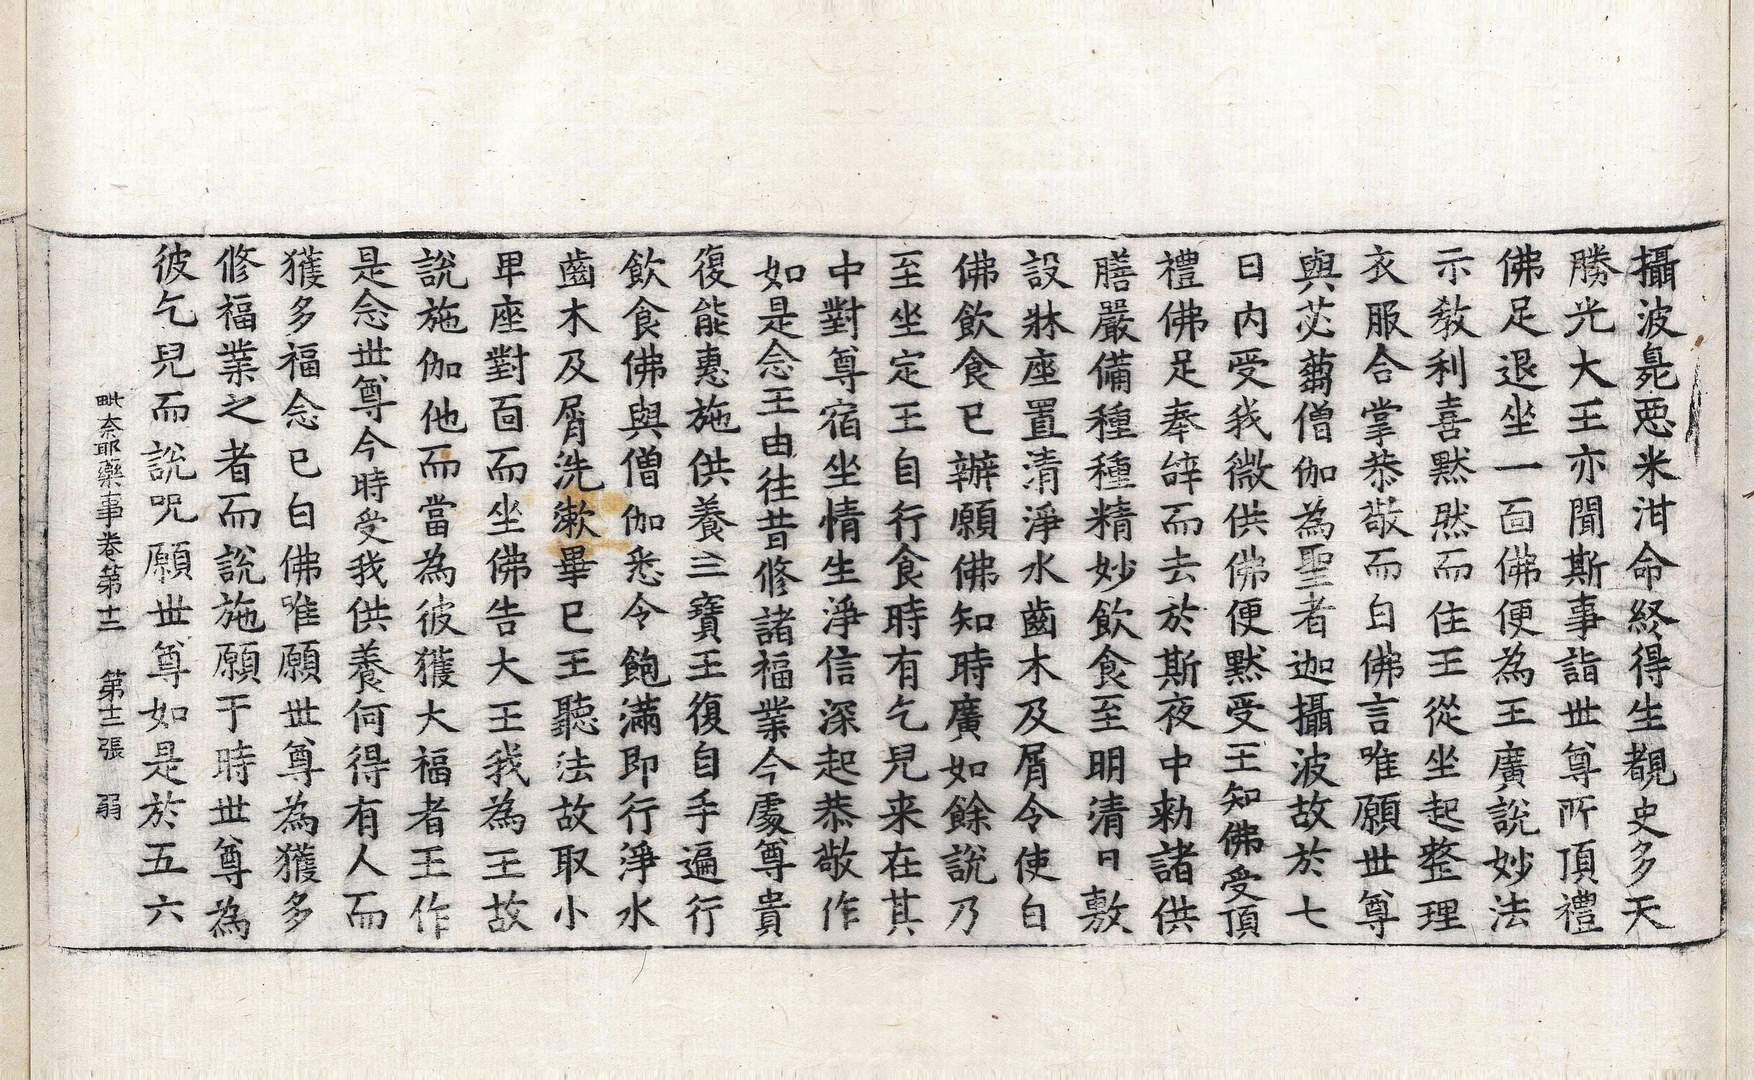 攝波臰惡米泔命終得生覩史多天
勝光大王亦聞斯事詣世尊所頂禮
佛足退坐一面佛便為王廣說妙法
示教利喜黙然而住王從坐起整理
衣服合掌恭敬而白佛言唯願世尊
與苾蒭僧伽為聖者迦攝波故於七
日內受我微供佛便黙受王知佛受頂
禮佛足奉辝而去於斯夜中勑諸供
膳嚴備種種精妙飲食至明清日敷
設牀座置清淨水齒木及屑令使白
佛飲食已辦願佛知時廣如餘說乃
至坐定王自行食時有乞兒来在其
中對尊宿坐情生淨信深起恭敬作
如是念王由往昔修諸福業今處尊貴
復能惠施供養三寶王復自手遍行
飲食佛與僧伽悉令飽滿即行淨水
齒木及屑洗漱畢已王聽法故取小
卑座對面而坐佛告大王我為王故
說施伽他而當為彼獲大福者王作
是念世尊今時受我供養何得有人而
獲多福念已白佛唯願世尊為獲多
修福業之者而說施願于時世尊為
彼乞兒而說呪願世尊如是於五六
毗奈耶藥事卷第十二　第十三張　弱